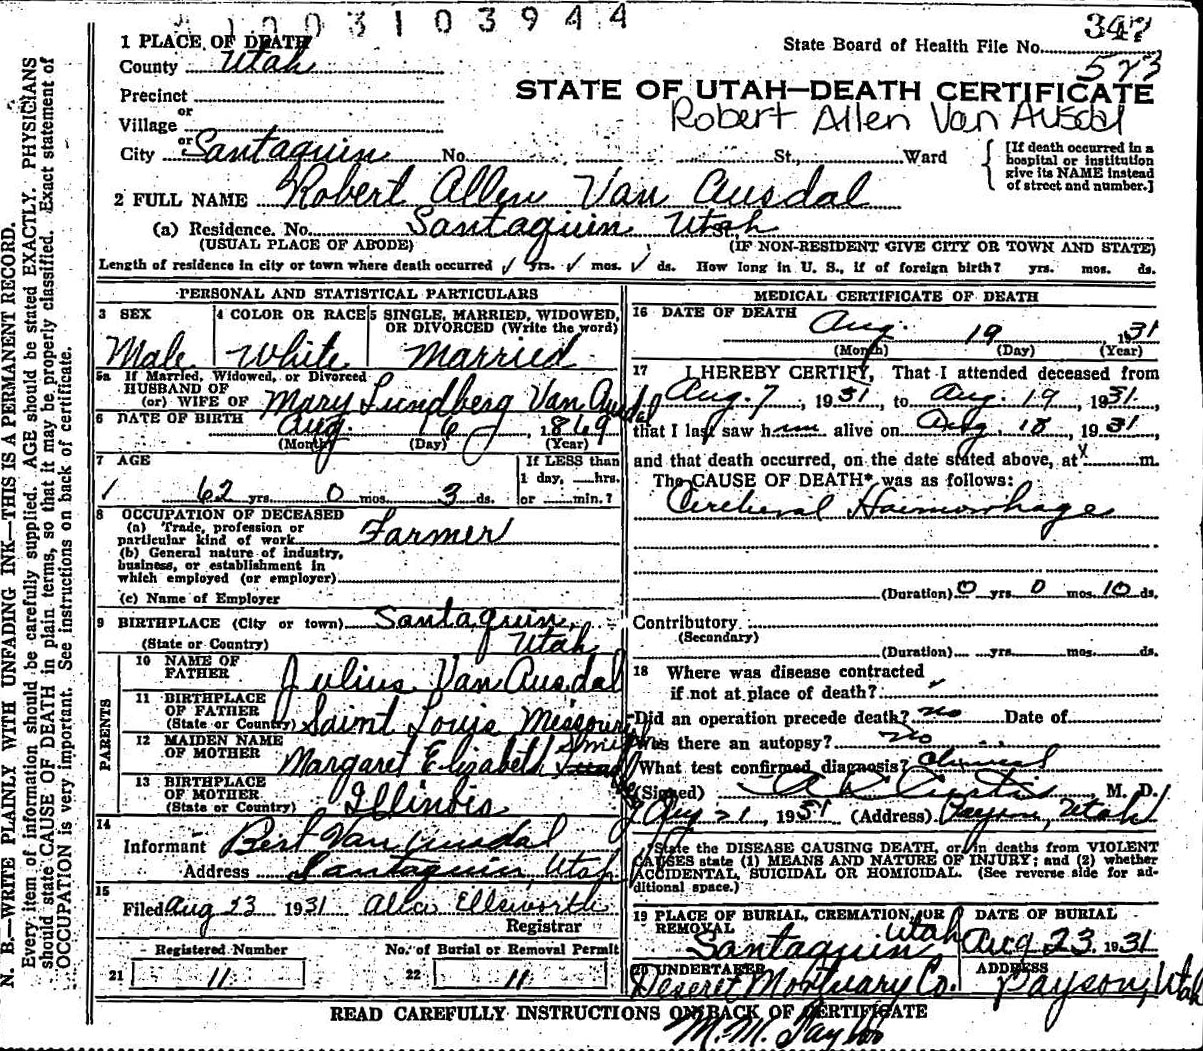 1003103944
347
1 PLACE OF DEATH
State Board of Health File No.
County Utah
523
Precinct
STATE OF UTAH—DEATH CERTIFICATE
or
Village
Robert Allen Van Ausdal
or
City Santaquin No. St., Ward
[If death occurred in a hospital or institution give its NAME instead of street and number.]
2 FULL NAME Robert Allen Van Ausdal
(a) Residence. No. Santaquin Utah
(USUAL PLACE OF ABODE) (IF NON-RESIDENT GIVE CITY OR TOWN AND STATE)
Length of residence in city or town where death occurred √ yrs. √ mos. √ ds. How long in U. S., if of foreign birth? yrs. mos. ds.
PERSONAL AND STATISTICAL PARTICULARS
3 SEX 4 COLOR OR RACE 5 SINGLE, MARRIED, WIDOWED, OR DIVORCED (Write the word)
Male White Married
5a If Married, Widowed, or Divorced
HUSBAND OF
(or) WIFE OF Mary Lundberg Van Ausdal
6 DATE OF BIRTH Aug. 16, 1869
(Month) (Day) (Year)
7 AGE
If LESS than
1 day, hrs.
62 yrs. 0 mos. 3 ds. or min.?
8 OCCUPATION OF DECEASED
(a) Trade, profession or
particular kind of work Farmer
(b) General nature of industry,
business, or establishment in
which employed (or employer)
(c) Name of Employer
9 BIRTHPLACE (City or town) Santaquin,
(State or Country) Utah
PARENTS
10 NAME OF
FATHER Julius Van Ausdal
11 BIRTHPLACE
OF FATHER
(State or Country) Saint Louis Missouri
12 MAIDEN NAME
OF MOTHER Margaret Elizabeth Smith
13 BIRTHPLACE
OF MOTHER
(State or Country) Illinois
14
Informant Bert Van Ausdal
Address Santaquin, Utah
15
Filed Aug 23 1931 Alla Ellsworth
Registrar
Registered Number No. of Burial or Removal Permit
21 11 22 11
MEDICAL CERTIFICATE OF DEATH
16 DATE OF DEATH
Aug. 19 1931
(Month) (Day) (Year)
17 I HEREBY CERTIFY, That I attended deceased from
Aug. 7, 1931, to Aug. 19, 1931.
that I last saw him alive on Aug. 18, 1931,
and that death occurred, on the date stated above, at x m.
The CAUSE OF DEATH* was as follows:
Cerebral Haemorrhage
(Duration) 0 yrs. 0 mos. 10 ds.
Contributory
(Secondary)
(Duration) yrs. mos. ds.
18 Where was disease contracted
if not at place of death?
Did an operation precede death? no Date of
Was there an autopsy? no
What test confirmed diagnosis? Clinical
(Signed) A L Curtis M. D.
Aug 21, 1931 (Address) Payson, Utah
*State the DISEASE CAUSING DEATH, or, in deaths from VIOLENT
CAUSES state (1) MEANS AND NATURE OF INJURY; and (2) whether
ACCIDENTAL, SUICIDAL OR HOMICIDAL. (See reverse side for additional space.)
19 PLACE OF BURIAL, CREMATION, OR REMOVAL DATE OF BURIAL
Santaquin Utah Aug 23 1931
20 UNDERTAKER ADDRESS
Deseret Mortuary Co. Payson, Utah
READ CAREFULLY INSTRUCTIONS ON BACK OF CERTIFICATE
M. M. Taylor
N. B.—WRITE PLAINLY WITH UNFADING INK—THIS IS A PERMANENT RECORD.
Every item of information should be carefully supplied. AGE should be stated EXACTLY. PHYSICIANS
should state CAUSE OF DEATH in plain terms, so that it may be properly classified. Exact statement of
OCCUPATION is very important. See instructions on back of certificate.